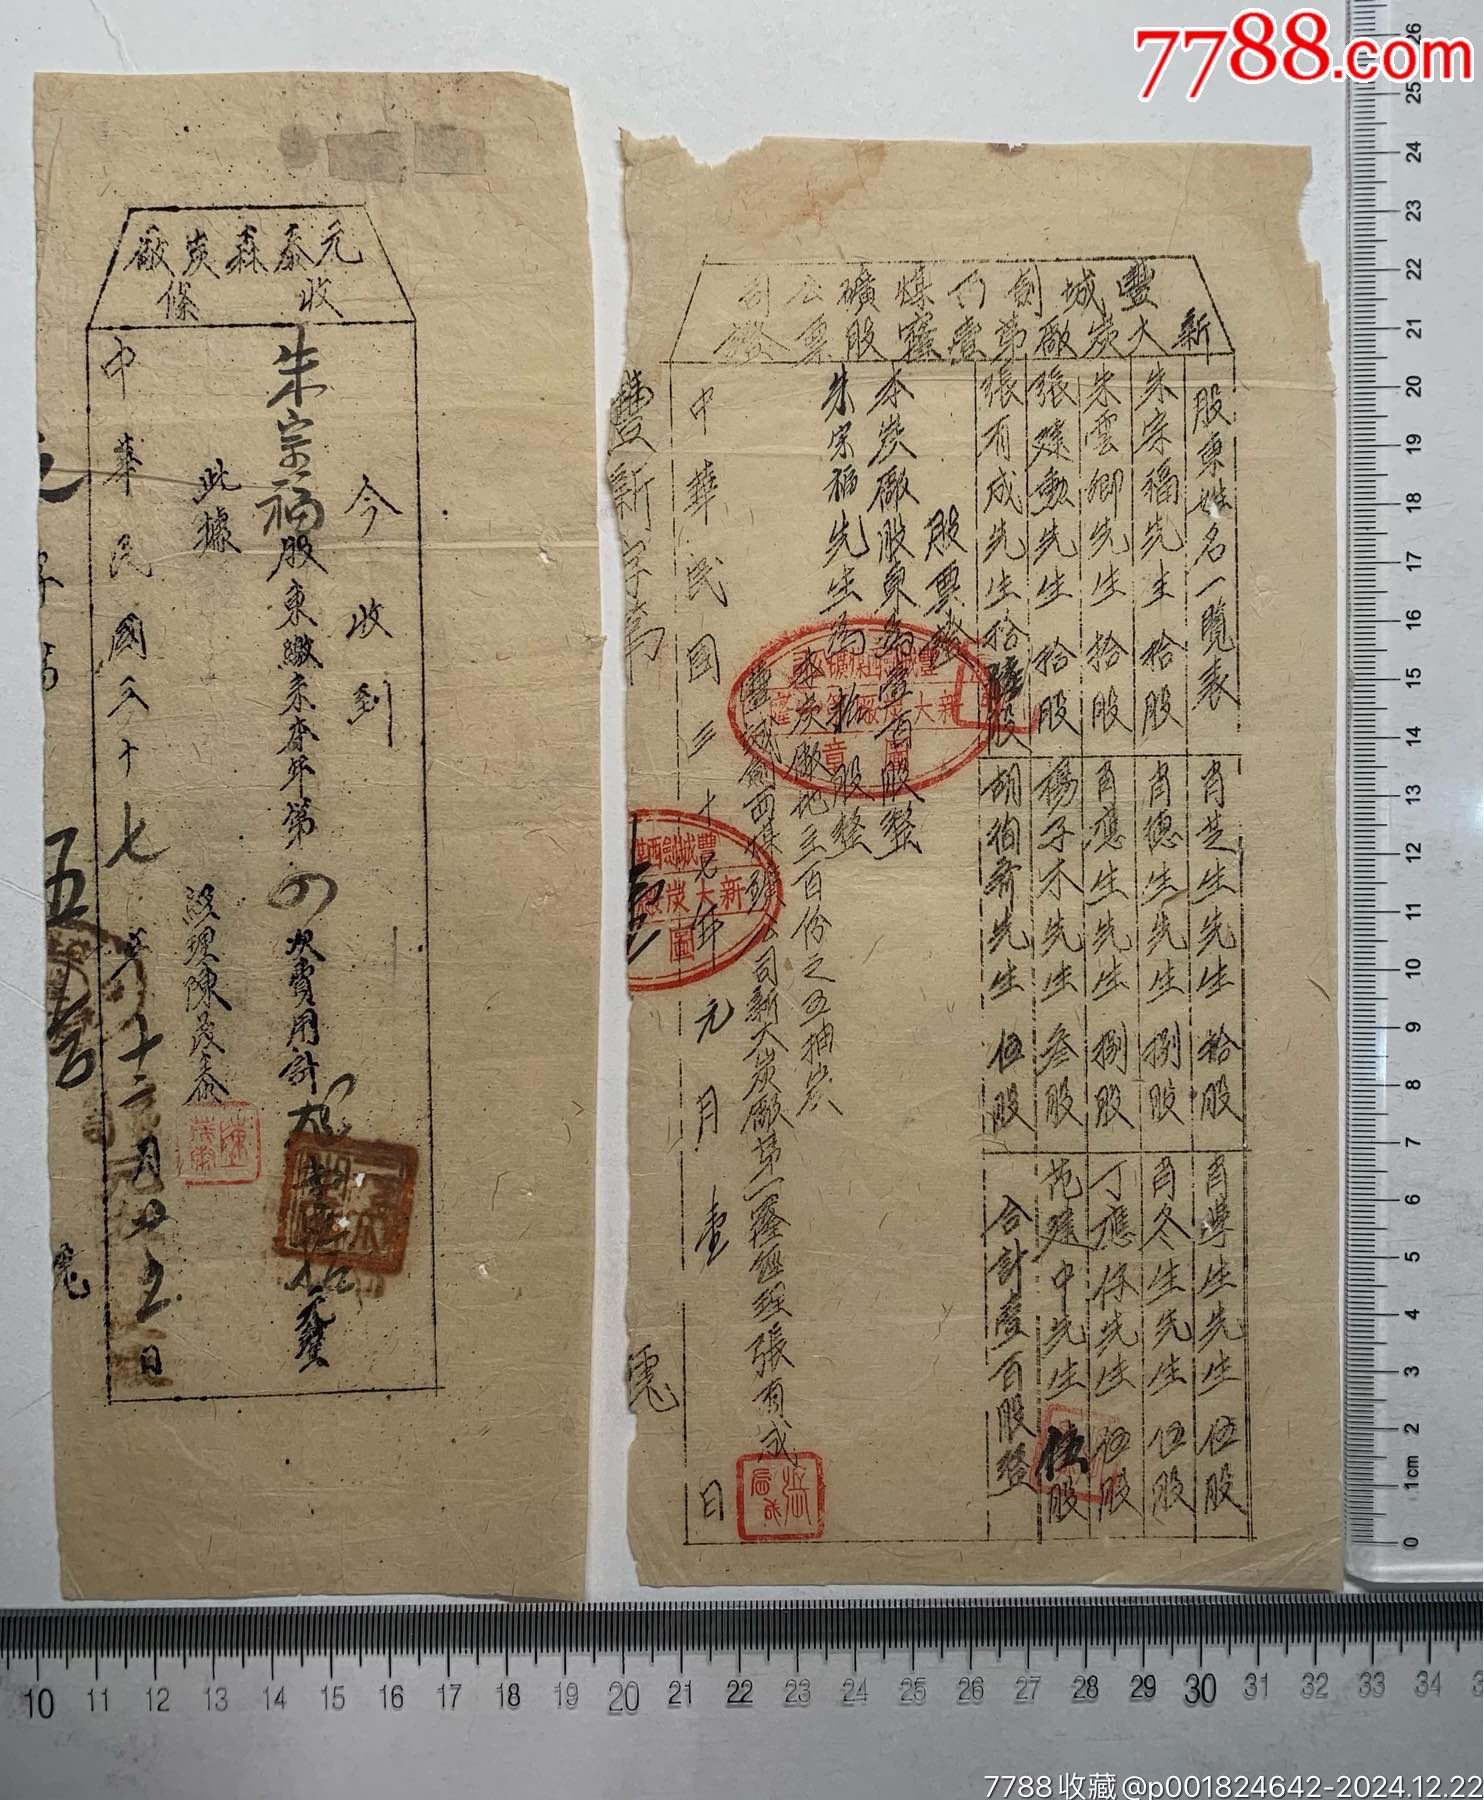 7788.com
豐城劍西煤礦公司
新大炭廠第壹窿股票證
股東姓名一覽表
朱宗福先生 拾股
朱雲卿先生 拾股
張建勳先生 拾股
張有成先生 拾陸股
肖芝生先生 拾股
肖德生先生 捌股
肖應生先生 捌股
楊子木先生 叁股
胡先生 伍股
肖學生先生 伍股
肖冬生先生 伍股
丁應保先生 伍股
范建中先生 伍股
合計壹百股整
股票證
本炭廠股東為壹百股整
朱宗福先生為拾股整
本炭廠地主百份之五抽炭
豐城劍西煤礦公司新大炭廠第一窿經理張有成
中華民國三十年元月壹日
豐新字第 壹 號
新大炭廠
圖章
元泰森炭廠
收條
今收到
朱宗福股東繳來本年第四次費用計
此據
經理陳茂泰
中華民國三十七年十二月廿五日
字第 五 號
7788收藏@p001824642-2024.12.22